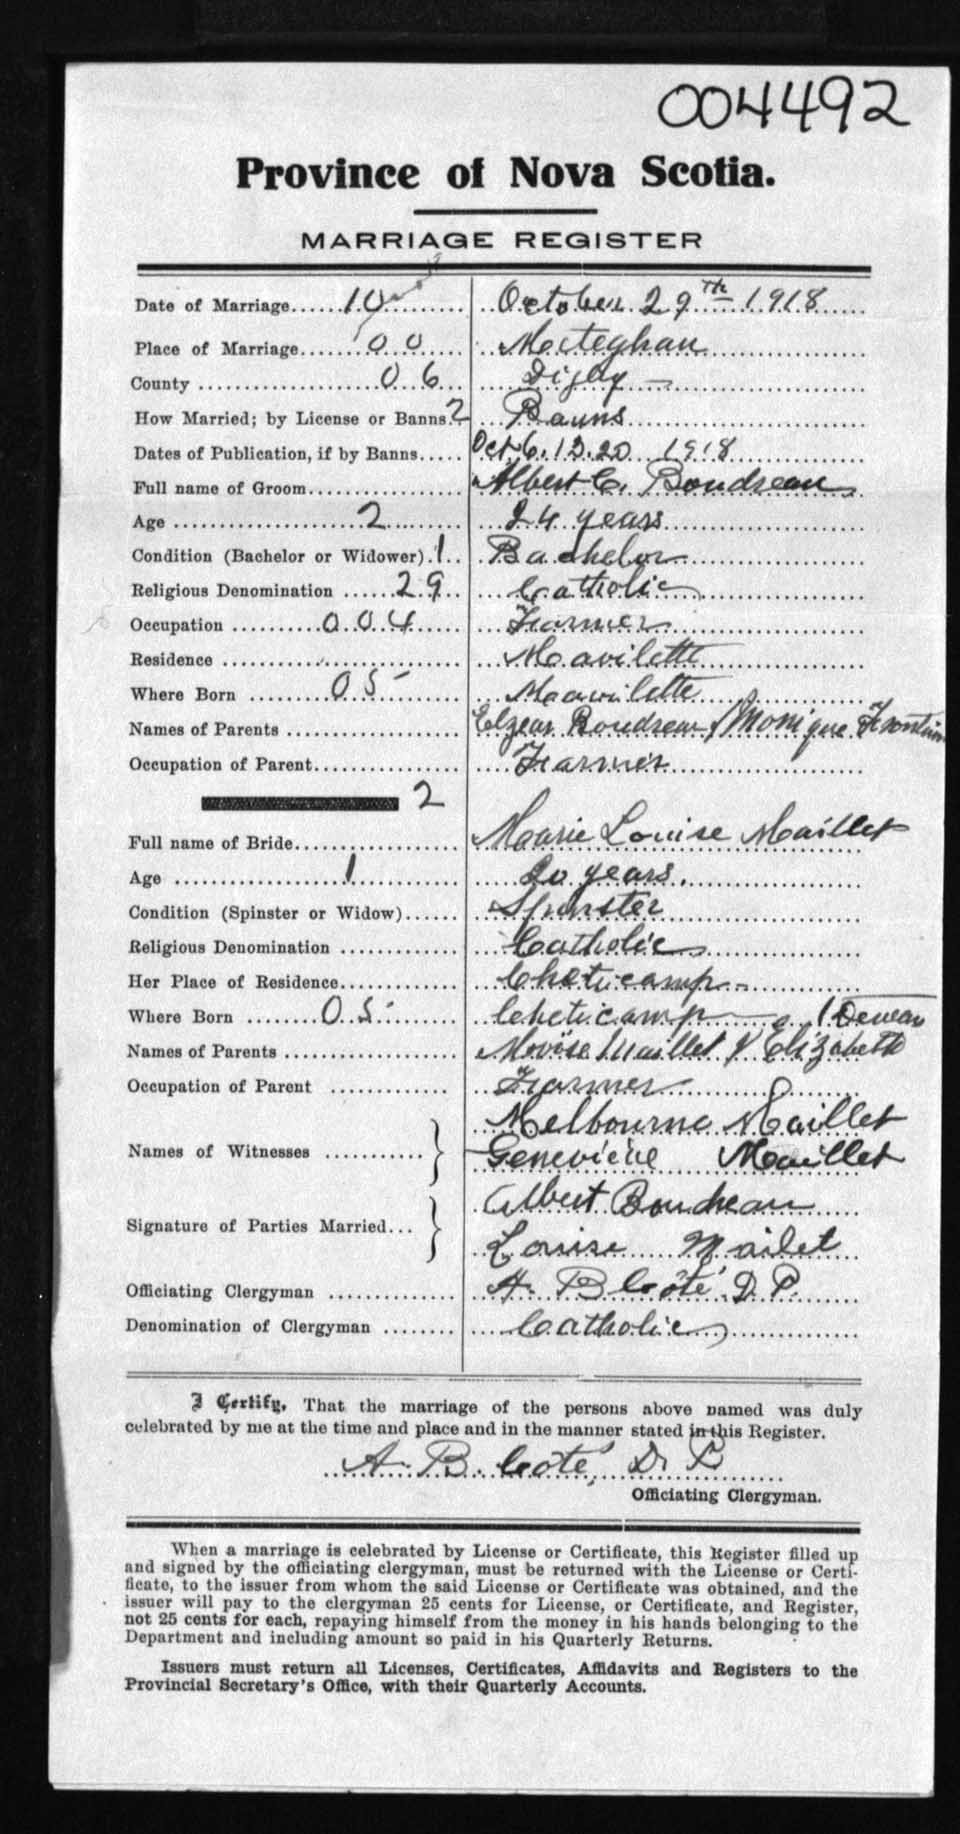 004492
Province of Nova Scotia.
MARRIAGE REGISTER
Date of Marriage......10......... October 29th 1918
Place of Marriage.......00..... Meteghan
County ..................06... Digby
How Married; by License or Banns.2 Banns
Dates of Publication, if by Banns..... Oct 6. 13. 20 1918
Full name of Groom................. Albert C. Boudreau
Age ....................2......... 24 years
Condition (Bachelor or Widower).1.. Bachelor
Religious Denomination ......29.. Catholic
Occupation ..........004...... Farmer
Residence .......................... Mavilette
Where Born ........05....... Mavilette
Names of Parents ................... Elzear Boudreau & Monique
Occupation of Parent................ Farmer
2
Full name of Bride.................. Marie Louise Maillet
Age ..................1............ 20 years.
Condition (Spinster or Widow)...... Spinster
Religious Denomination ............ Catholic
Her Place of Residence............. Cheticamp
Where Born ........05....... Cheticamp
Names of Parents ................... Moïse Maillet & Elizabeth
Occupation of Parent ............. Farmer
Names of Witnesses ........... } Melbourne Maillet
Genevieve Maillet
Signature of Parties Married... } Albert Boudreau
Louise Mailet
Officiating Clergyman .............. A. B. Côté, D. P.
Denomination of Clergyman ........ Catholic
I Certify, That the marriage of the persons above named was duly
celebrated by me at the time and place and in the manner stated in this Register.
A. B. Côté, D. P.
Officiating Clergyman.
When a marriage is celebrated by License or Certificate, this Register filled up
and signed by the officiating clergyman, must be returned with the License or Certi-
ficate, to the issuer from whom the said License or Certificate was obtained, and the
issuer will pay to the clergyman 25 cents for License, or Certificate, and Register,
not 25 cents for each, repaying himself from the money in his hands belonging to the
Department and including amount so paid in his Quarterly Returns.
Issuers must return all Licenses, Certificates, Affidavits and Registers to the
Provincial Secretary's Office, with their Quarterly Accounts.